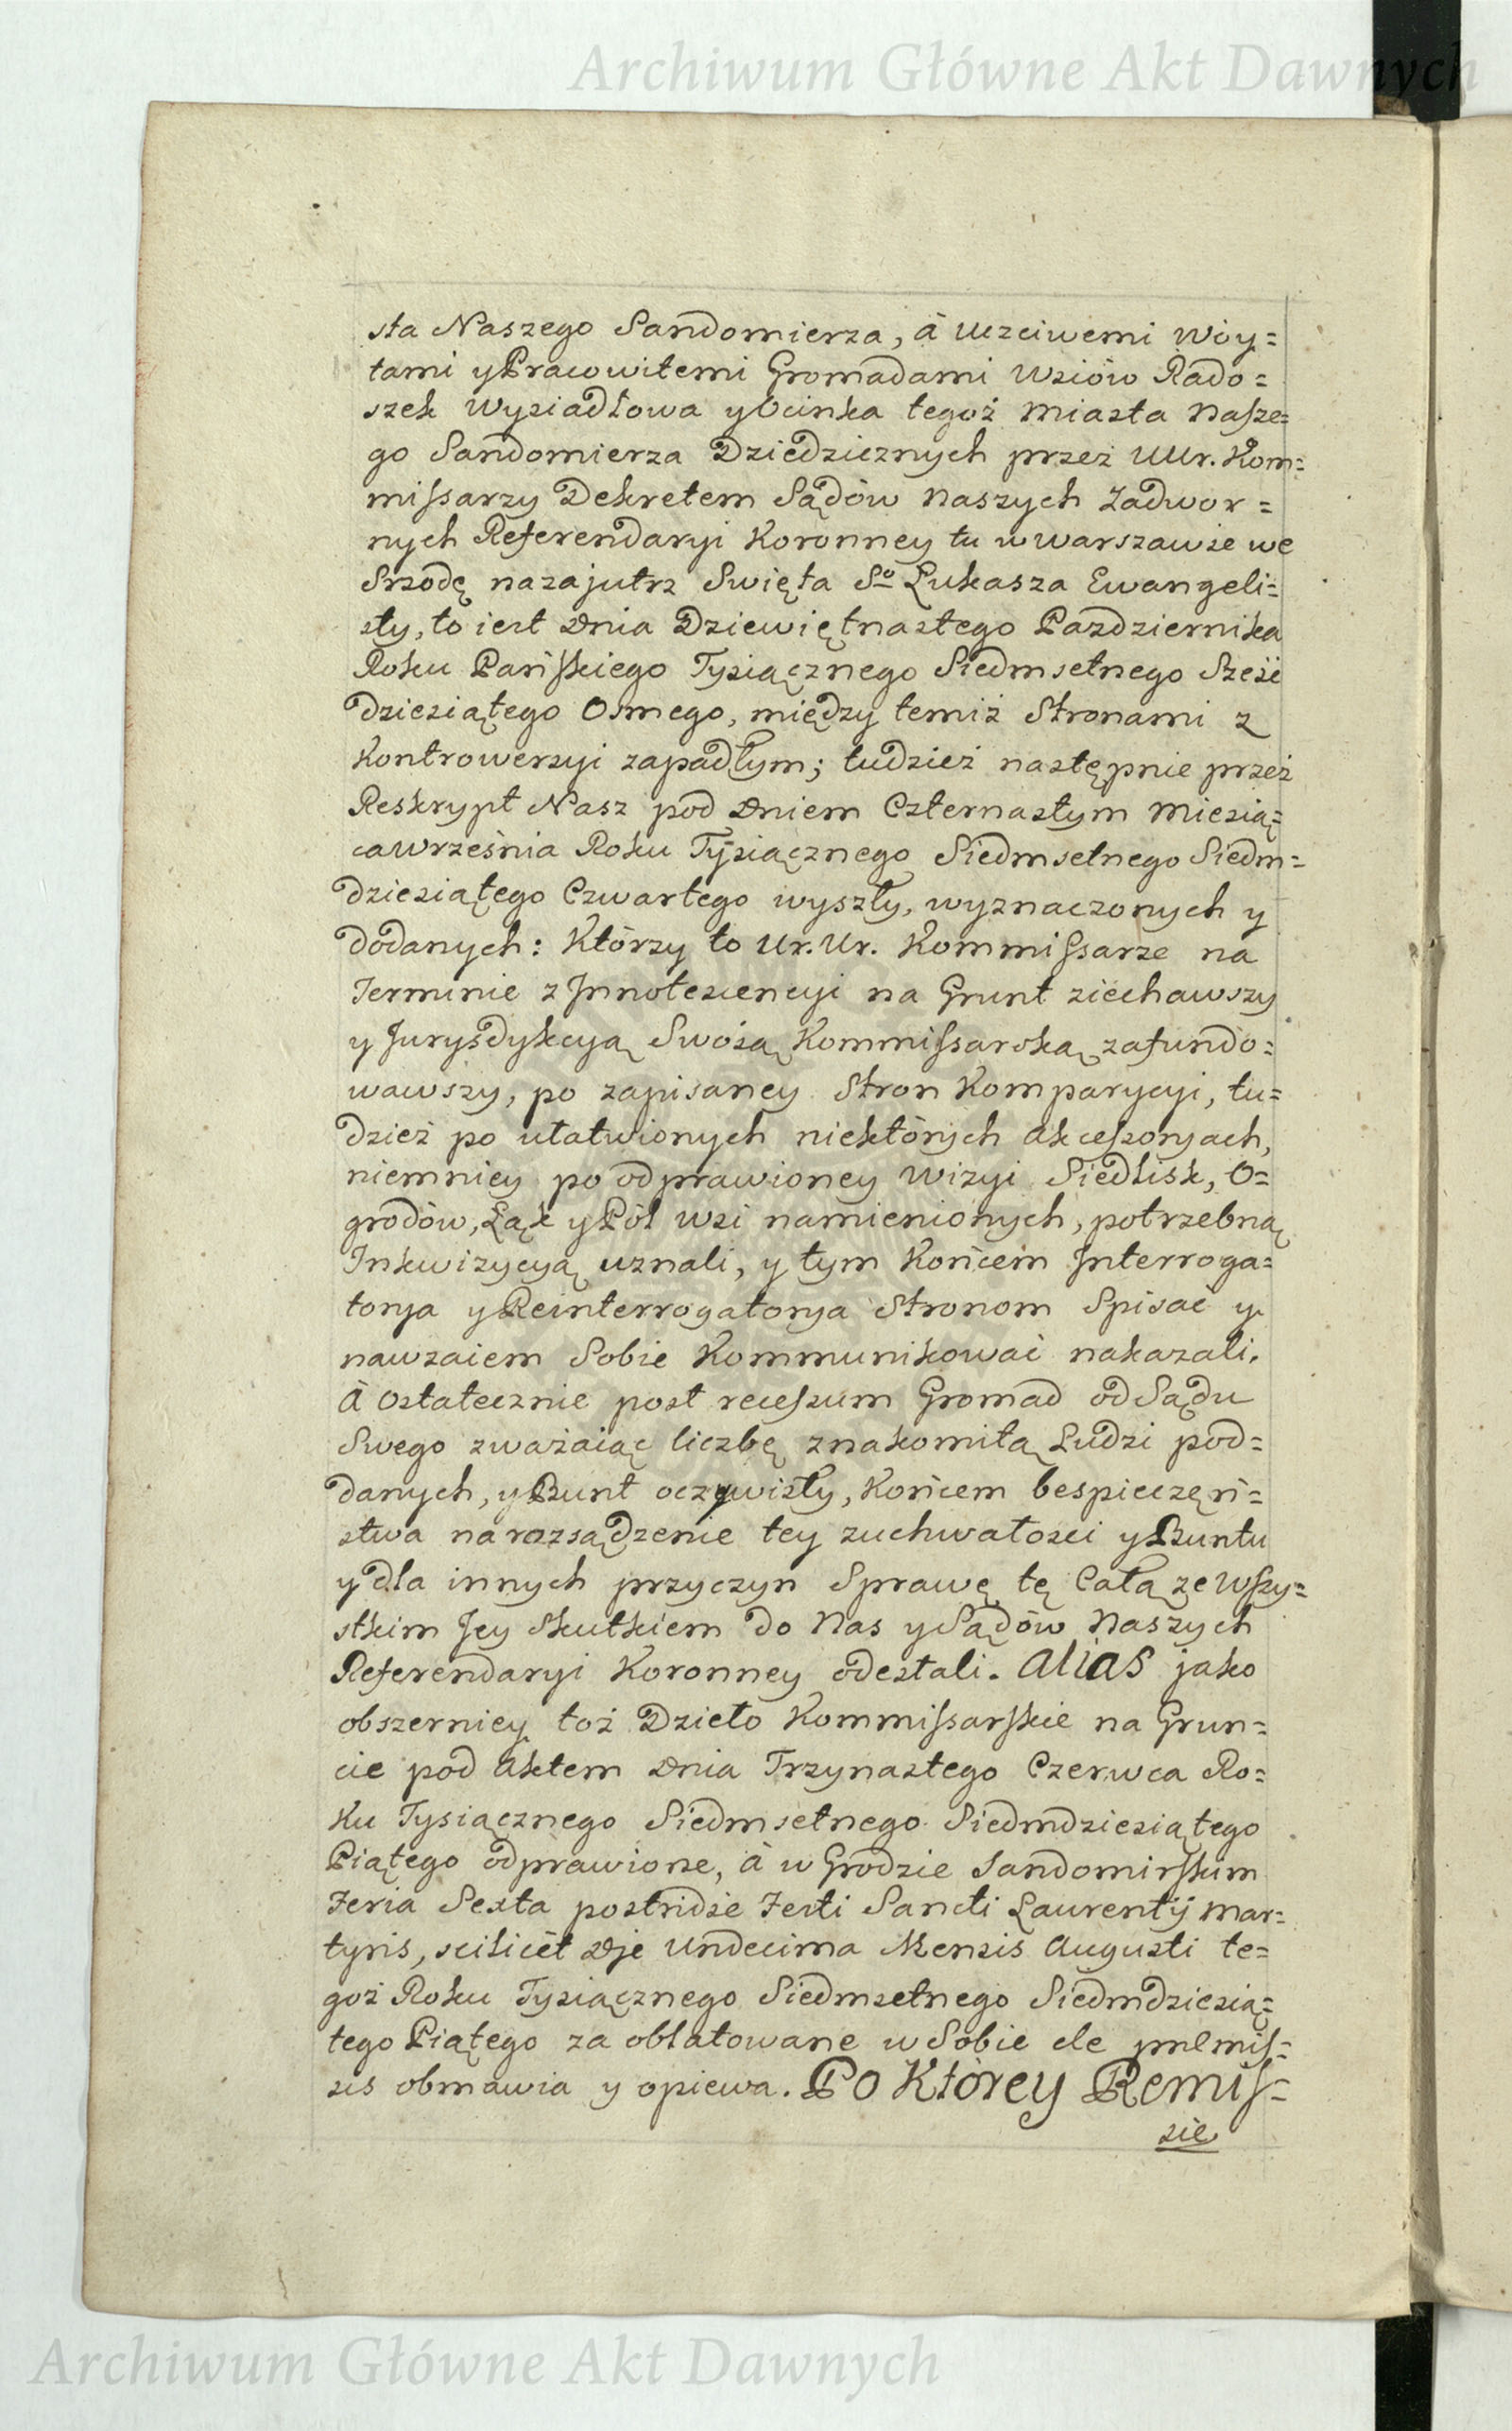 Archiwum Główne Akt Dawnych
sta Naszego Sandomierza, á Uczciwemi Wóy=
tami y Pracowitemi Gromadami Wsiów Rado=
szek Wysiadłowa y Ocinka tegoż Miasta Nasze=
go Sandomierza Dziedzicznych przez UUr. Kom=
missarzy Dekretem Sądów Naszych Zadwor=
nych Referendaryi Koronney tu w Warszawie we
Srzodę nazajutrz Swięta So Łukasza Ewangeli=
sty, to iest Dnia Dziewiętnastego Pazdziernika
Roku Pańskiego Tysiącznego Siedmsetnego Sześć
dziesiątego Osmego, między temiż Stronami z
Kontrowersyi zapadłym; tudzież następnie przez
Reskrypt Nasz pod Dniem Czternastym Miesią=
ca Września Roku Tysiącznego Siedmsetnego Siedm=
dziesiątego Czwartego wyszły, wyznaczonych y
dodanych: Którzy to Ur. Ur. Kommissarze na
Terminie z Innotescencyi na Grunt ziechawszy
y Jurysdykcyą Swoią Kommissarską zafundo=
wawszy, po zapisaney Stron Komparycyi, tu=
dzież po ułatwionych niektórych Akcessoryach,
niemniey po odprawioney Wizyi Siedlisk, O=
grodów, Łąk y Pól Wsi namienionych, potrzebną
Inkwizycyą uznali, y tym Końcem Interroga=
torya y Reinterrogatorya Stronom Spisać y
nawzaiem Sobie Kommunikować nakazali.
À Ostatecznie post recessum Gromad od Sądu
Swego zważaiąc liczbę znakomitą Ludzi pod=
danych, y Bunt oczywisty, Końcem bespieczęń=
stwa na rozsądzenie tey zuchwałości y Buntu
y dla innych przyczyn Sprawę tę Całą ze Wszy=
stkim Jey Skutkiem do Nas y Sądów Naszych
Referendaryi Koronney odesłali. Alias jako
obszerniey toż Dzieło Kommissarskie na Grun=
cie pod Aktem Dnia Trzynastego Czerwca Ro=
ku Tysiącznego Siedmsetnego Siedmdziesiątego
Piątego odprawione, á w Grodzie Sandomirskim
Feria Sexta postridie Festi Sancti Laurentÿ Mar=
tyris, scilicèt Die Undecima Mensis Augusti te=
goż Roku Tysiącznego Siedmsetnego Siedmdziesią=
tego Piątego za oblatowane w Sobie de pmlmis=
sis obmawia y opiewa. Po Którey Remis=
sie
Archiwum Główne Akt Dawnych